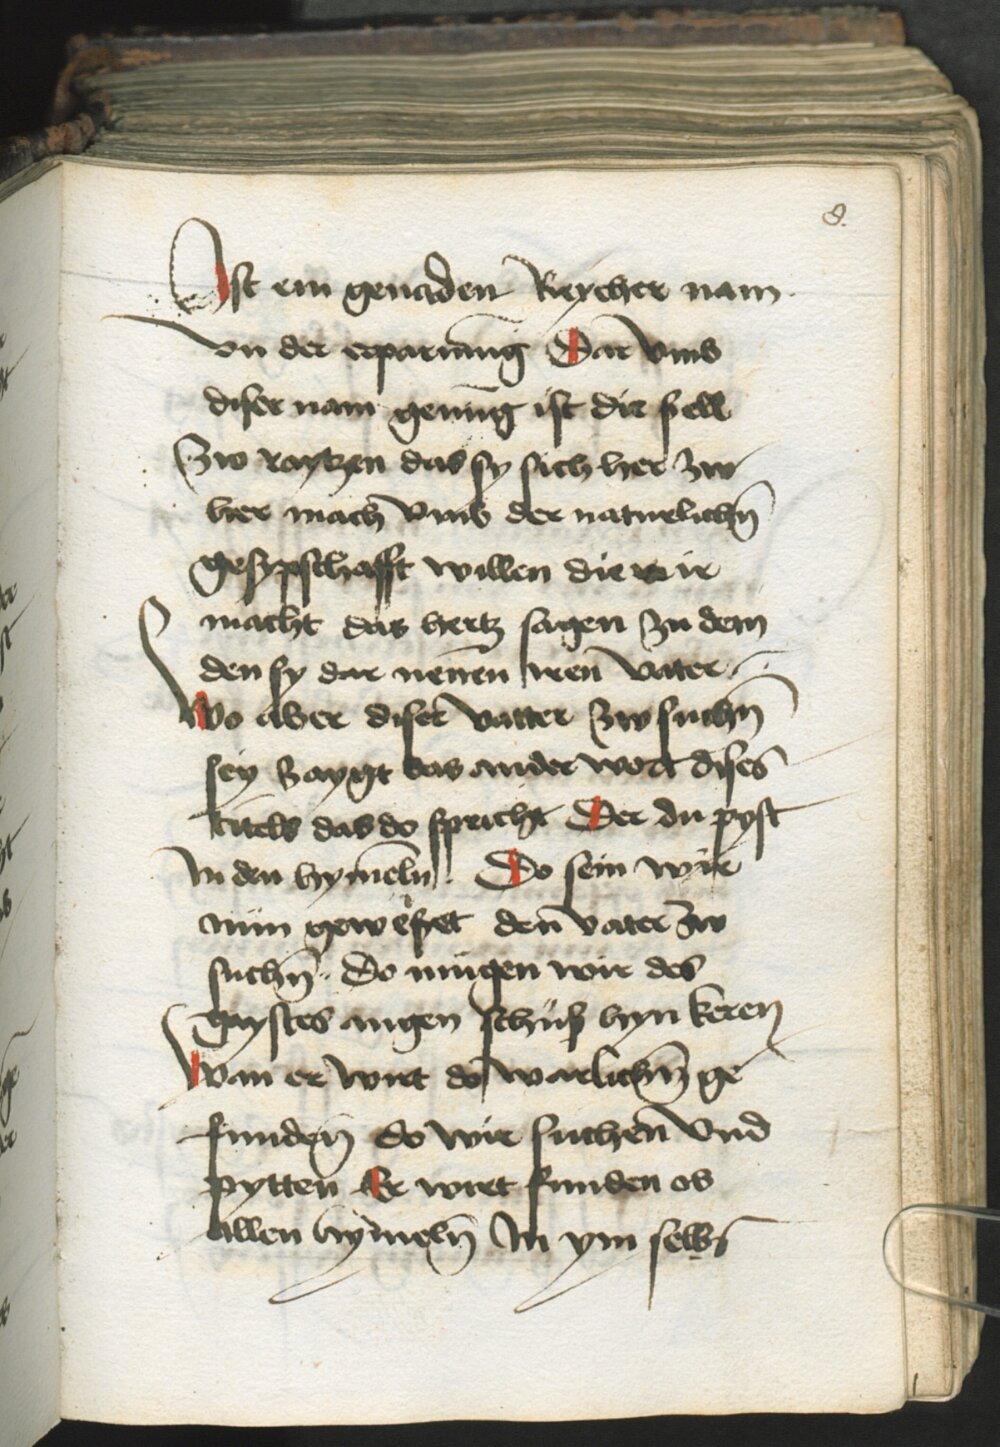 8.
Ist ein genaden Reycher nam
vn der erparmūg Dar vmb
diser nam genūg ist die sell
Zw raytzen das sy sich her zw
her mach vmb der naturlichn̄
gesypschafft willen die wir
macht das hertz sagen zu dem
den sy dar nennen iren vater
Wo aber diser vatter zw suchn̄
sey Zaygt das ander wort dises
titels das do spricht Der du pyst
In den hymeln̄. Do sein wir
nün geweset den vater zw
suchn̄. do mugen wir des
gaystes augen schüß hyn keren
wan er wirt do warlichn̄ ge
funden̄ do wir suchen vnd
pytten Er wirt funden ob
allen hymeln̄ In ym selbs